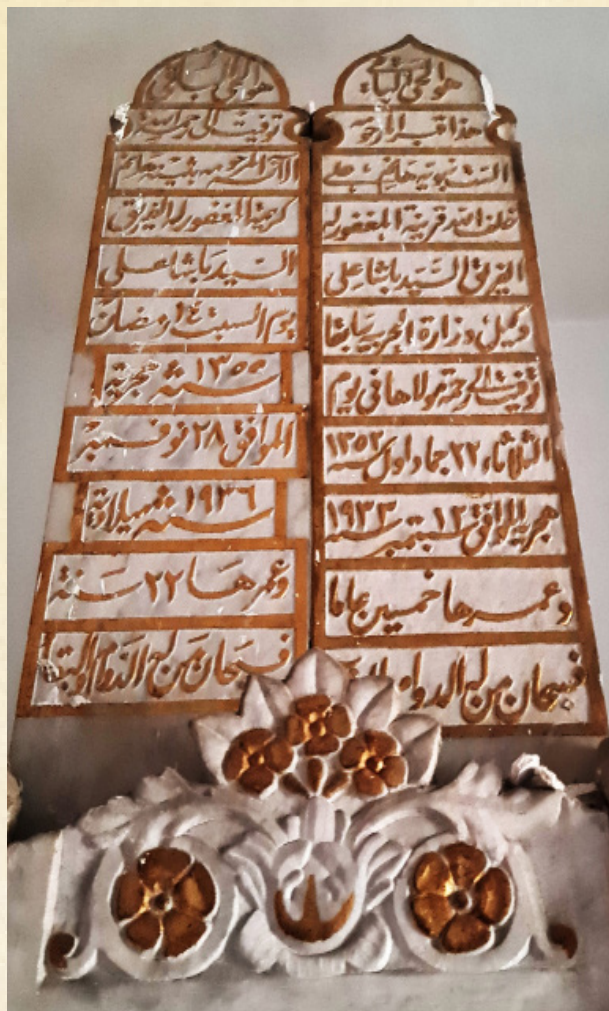 هو الحي الباقي
هذا قبر المرحومة
الست نبويه هانم علي
خلف الله قرينة المغفور له
الفريق السيد باشا علي
وكيل وزارة الحربية سابقا
توفيت لرحمة مولاها في يوم
الثلاثاء ٢٢ جماد اول سنة ١٣٥٢
هجرية الموافق ١٢ سبتمبر سنة ١٩٣٣
وعمرها خمسين عاما
فسبحان من له الدوام
هو الحي الباقي
توفيت الى رحمة الله
الآنسة المرحومه بثينة هانم
كريمة المغفور له الفريق
السيد باشا علي
يوم السبت ١٤ رمضان
سنة ١٣٥٥ هجرية
الموافق ٢٨ نوفمبر
سنة ١٩٣٦ ميلادية
وعمرها ٢٢ سنة
فسبحان من له الدوام والبقا